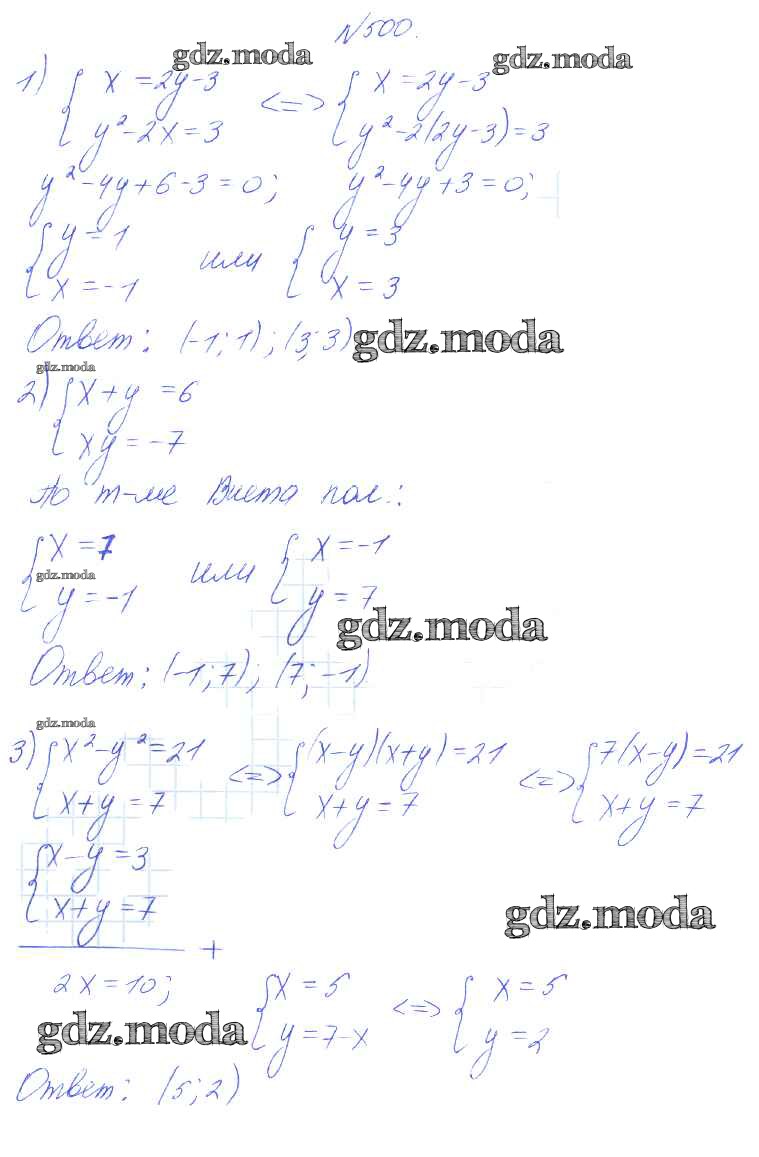 N500.
gdz.moda gdz.moda
1) { x = 2y-3 <=> { x = 2y-3
{ y²-2x = 3 { y²-2(2y-3) = 3
y²-4y+6-3 = 0; y²-4y+3 = 0;
{ y = 1 или { y = 3
{ x = -1 { x = 3
Ответ: (-1; 1); (3; 3) gdz.moda
gdz.moda
2) { x+y = 6
{ xy = -7
По т-ме Виета пол.:
{ x = 7 или { x = -1
gdz.moda
{ y = -1 { y = 7
gdz.moda
Ответ: (-1; 7); (7; -1)
gdz.moda
3) { x²-y² = 21 <=> { (x-y)(x+y) = 21 <=> { 7(x-y) = 21
{ x+y = 7 { x+y = 7 { x+y = 7
{ x-y = 3
{ x+y = 7
gdz.moda
+
2x = 10; { x = 5 <=> { x = 5
gdz.moda { y = 7-x { y = 2
Ответ: (5; 2)